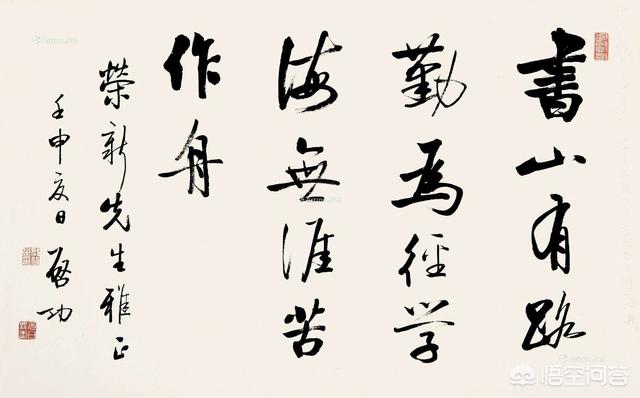 書山有路
勤為徑学
海無涯苦
作舟
榮新先生雅正
壬申夏日 啓功
悟空问答